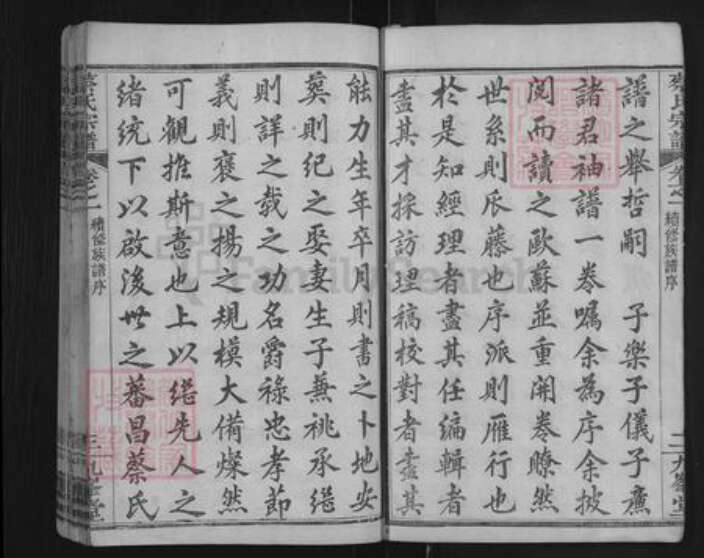 蔡氏宗譜 卷之一 續修族譜序 二 九峯堂
譜之舉哲嗣 子樂子儀子廉
諸君袖譜一卷囑余為序余披
閱而讀之歐蘇並重開卷瞭然
世系則瓜藤也序派則雁行也
於是知經理者盡其任編輯者
盡其才採訪理稿校對者盡其
能力生年卒月則書之卜地安
葬則紀之娶妻生子兼祧承繼
則詳之載之功名爵祿忠孝節
義則褒之揚之規模大備燦然
可觀推斯意也上以繼先人之
緒統下以啟後世之蕃昌蔡氏
蔡氏宗譜 卷之一 續修族譜序 三 九峯堂
FamilySearch